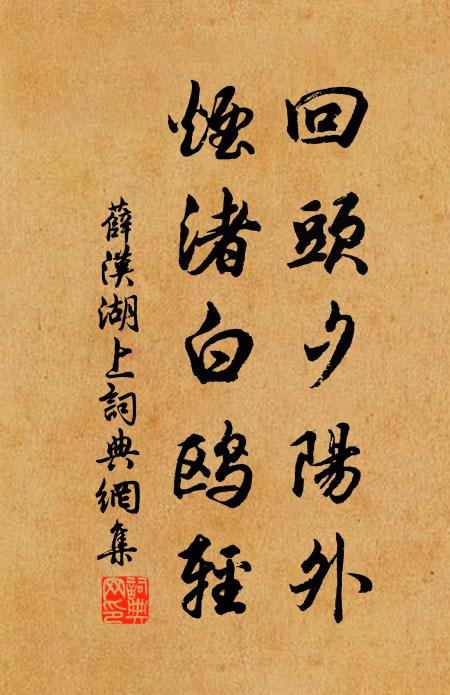 回頭夕陽外
煙渚白鷗輕
薛漢湖上詞典網集
詞典網印